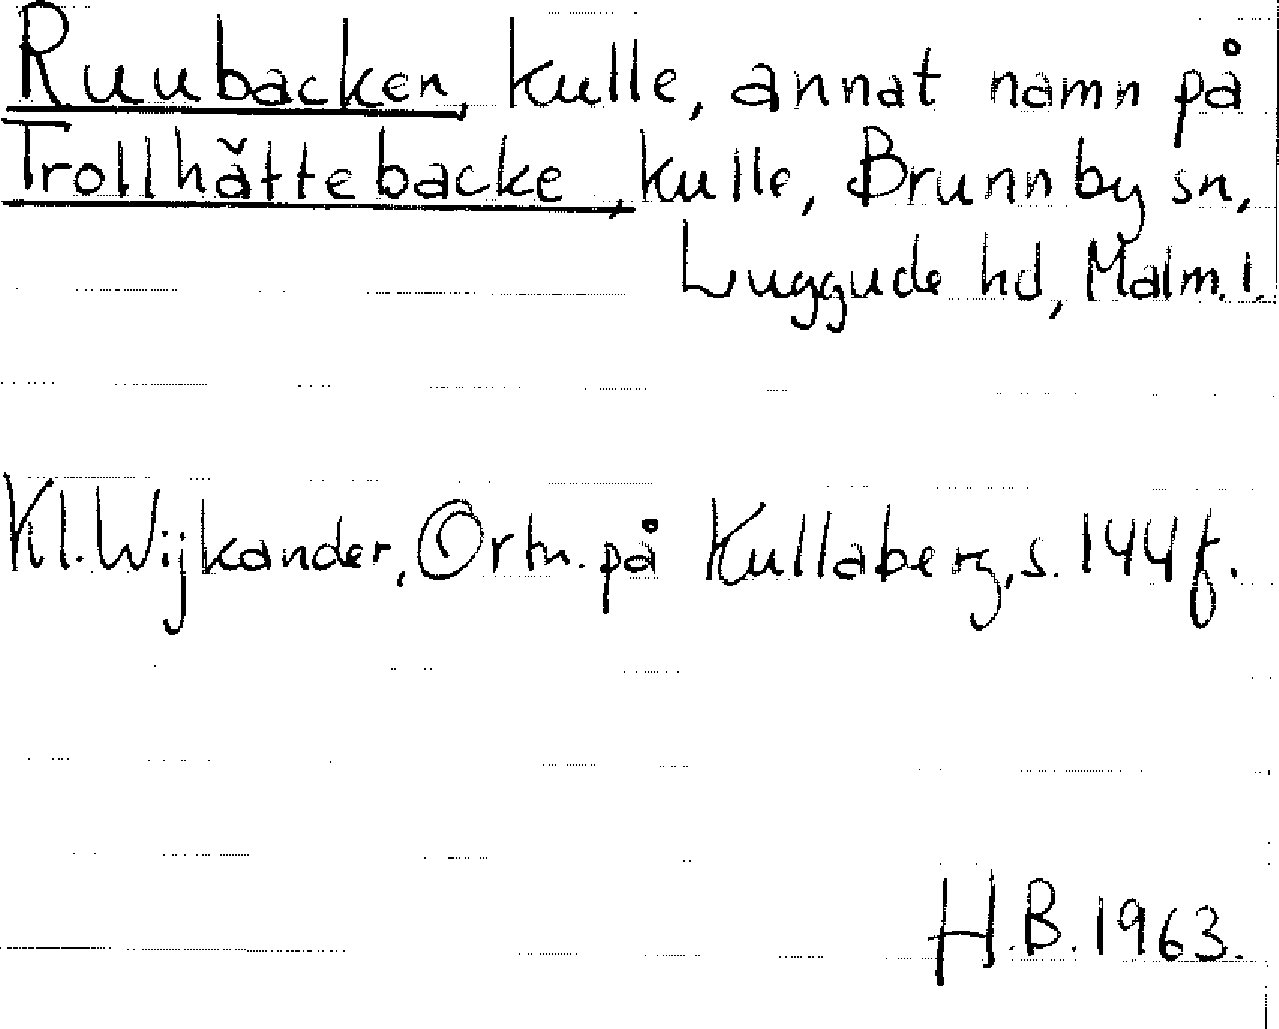 Ruubacken, kulle, annat namn på
Trollhättebacke, kulle, Brunnby sn,
Luggude hd, Malm. l.
Kl. Wijkander, Ortn. på Kullaberg, s. 144 f.
H.B. 1963.